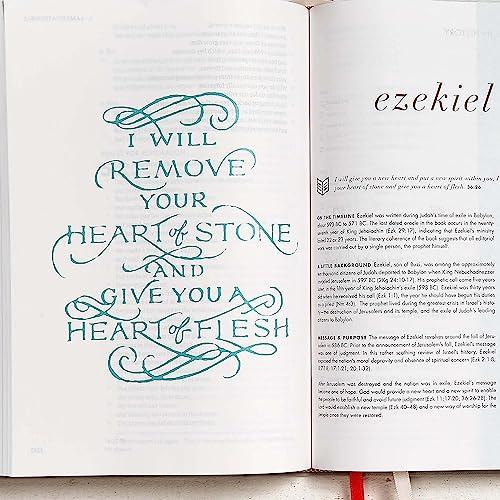 LAMENTATIONS
I WILL
REMOVE
YOUR
HEART of STONE
AND
GIVE YOU A
HEART of FLESH
HISTORY
ezekiel
I will give you a new heart and put a new spirit within you, I
your heart of stone and give you a heart of flesh. 36:26
ON THE TIMELINE Ezekiel was written during Judah's time of exile in Babylon,
about 593 BC to 571 BC. The last dated oracle in the book occurs in the twenty-
seventh year of King Jehoiachin (Ezk 29:17), indicating that Ezekiel's ministry
lasted 22 or 23 years. The literary coherence of the book suggests that all editorial
was carried out by a single person, the prophet himself.
A LITTLE BACKGROUND Ezekiel, son of Buzi, was among the approximately
thousand citizens of Judah deported to Babylon when King Nebuchadnezzar
Jerusalem in 597 BC (2Kg 24:10-17). His prophetic call came five years
in the fifth year of King Jehoiachin's exile (593 BC). Ezekiel was thirty years
when he received his call (Ezk 1:1), the year he should have begun his duties
priest (Nm 4:3). The prophet lived during the greatest crisis in Israel's history
—the destruction of Jerusalem and its temple, and the exile of Judah's leading
citizens to Babylon.
MESSAGE & PURPOSE The message of Ezekiel revolves around the fall of Jerusalem
in 586 BC. Prior to the announcement of Jerusalem's fall, Ezekiel's message
was of judgment. In this rather scathing review of Israel's history, Ezekiel
exposed the nation's moral depravity and absence of spiritual concern (Ezk 2:1-8;
17:21; 20:1-32).
After Jerusalem was destroyed and the nation was in exile, Ezekiel's message
became one of hope. God would provide a new heart and a new spirit to enable
the people to be faithful and avoid future judgment (Ezk 11:17-20; 36:26-28). The
Lord would establish a new temple (Ezk 40–48) and a new way of worship for the
people once they were restored.